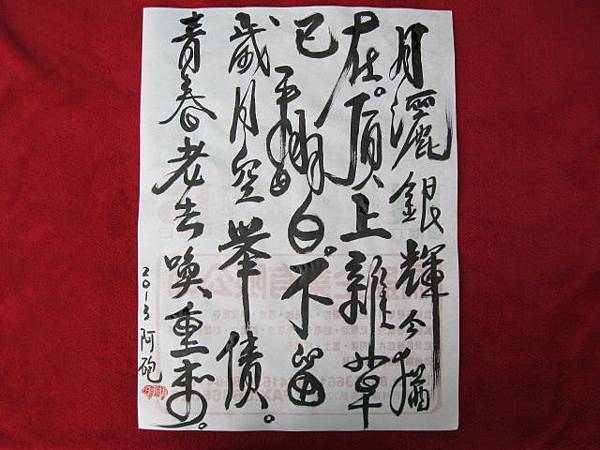 月灑銀輝今猶
在。頂上雜草
已翻白。不留
歲月空舉債。
青春老去喚重來。
2013 阿砲